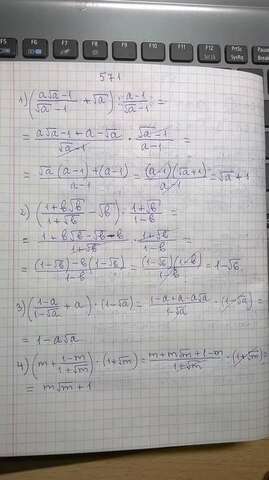 F5 F6 F7 F8 F9 F10 F11 F12 PrtSc SysRq
571
1) (a√a-1/√a-1 + √a) : a-1/√a-1 =
= a√a-1+a-√a/√a-1 · √a-1/a-1 =
= √a(a-1)+(a-1)/a-1 = (a-1)(√a+1)/a-1 = √a+1
2) (1+b√b/1+√b - √b) · 1+√b/1-b =
= 1+b√b-√b-b/1+√b · 1+√b/1-b =
= (1-√b)-b(1-√b)/1-b = (1-√b)(1-b)/1-b = 1-√b
3) (1-a/1-√a + a) · (1-√a) = 1-a+a-a√a/1-√a · (1-√a) =
= 1-a√a
4) (m + 1-m/1+√m) · (1+√m) = m+m√m+1-m/1+√m · (1+√m) =
= m√m+1